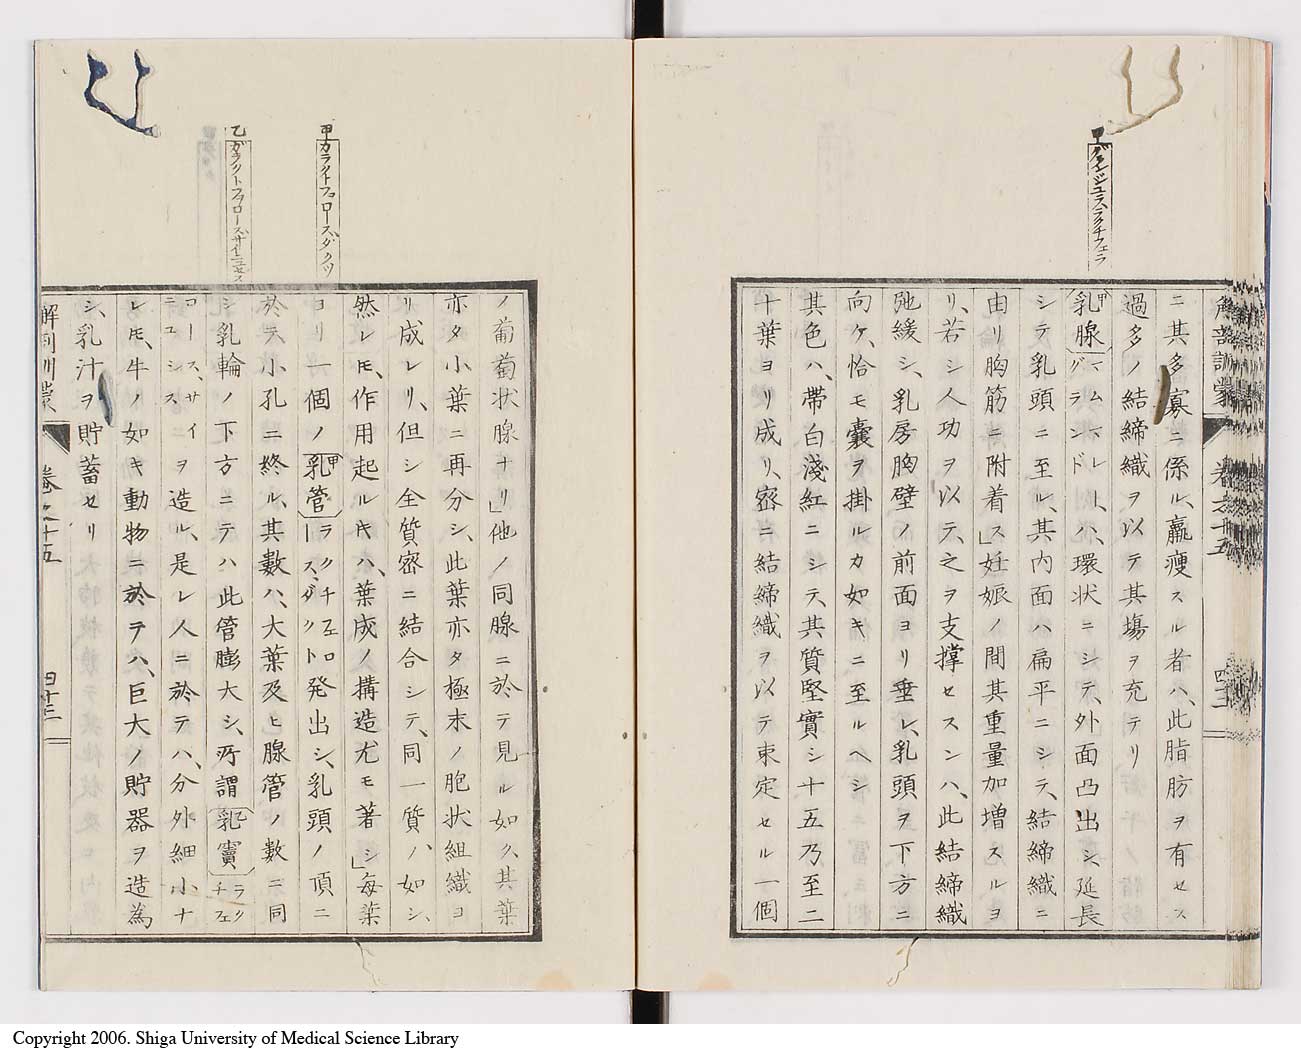 甲グランジュスラクチフェラ
ニ其多寡ニ係ル、羸痩スル者ハ、此脂肪ヲ有セス
過多ノ結締織ヲ以テ其塲ヲ充テリ
甲乳腺マムマレーグランドハ、環状ニシテ、外面凸出シ、延長
シテ乳頭ニ至ル、其内面ハ扁平ニシテ、結締織ニ
由リ胸筋ニ附着ス」妊娠ノ間其重量加増スルヨ
リ、若シ人功ヲ以テ、之ヲ支撐セスンハ、此結締織
弛緩シ、乳房胸壁ノ前面ヨリ垂レ、乳頭ヲ下方ニ
向ケ、恰モ嚢ヲ掛ルカ如キニ至ルヘシ
其色ハ、帯白淺紅ニシテ、其質堅實シ十五乃至二
十葉ヨリ成リ、宻ニ結締織ヲ以テ束定セル一個
甲カラクトフョロースダクツ
乙ガラクトフョロースサイニュセス
ノ葡萄状腺ナリ」他ノ同腺ニ於テ見ル如ク、其葉
亦タ小葉ニ再分シ、此葉亦タ極末ノ胞状組織ヨ
リ成レリ、但シ全質宻ニ結合シテ、同一質ハ如シ、
然レモ、作用起ルキハ、葉成ノ搆造尤モ著シ」毎葉
ヨリ一個ノ甲乳管ラクチフェロースダクト発出シ、乳頭ノ頂ニ
於テ小孔ニ終ル、其數ハ、大葉及ヒ腺管ノ數ニ同
シ乳輪ノ下方ニテハ此管膨大シ、所謂乙乳竇ラクチフェ
ロースサイニユシスヲ造ル、是レ人ニ於テハ、分外細小ナ
レモ、牛ノ如キ動物ニ於テハ、巨大ノ貯器ヲ造為
シ、乳汁ヲ貯蓄セリ
解剖訓蒙　卷之十五　四十三
Copyright 2006. Shiga University of Medical Science Library